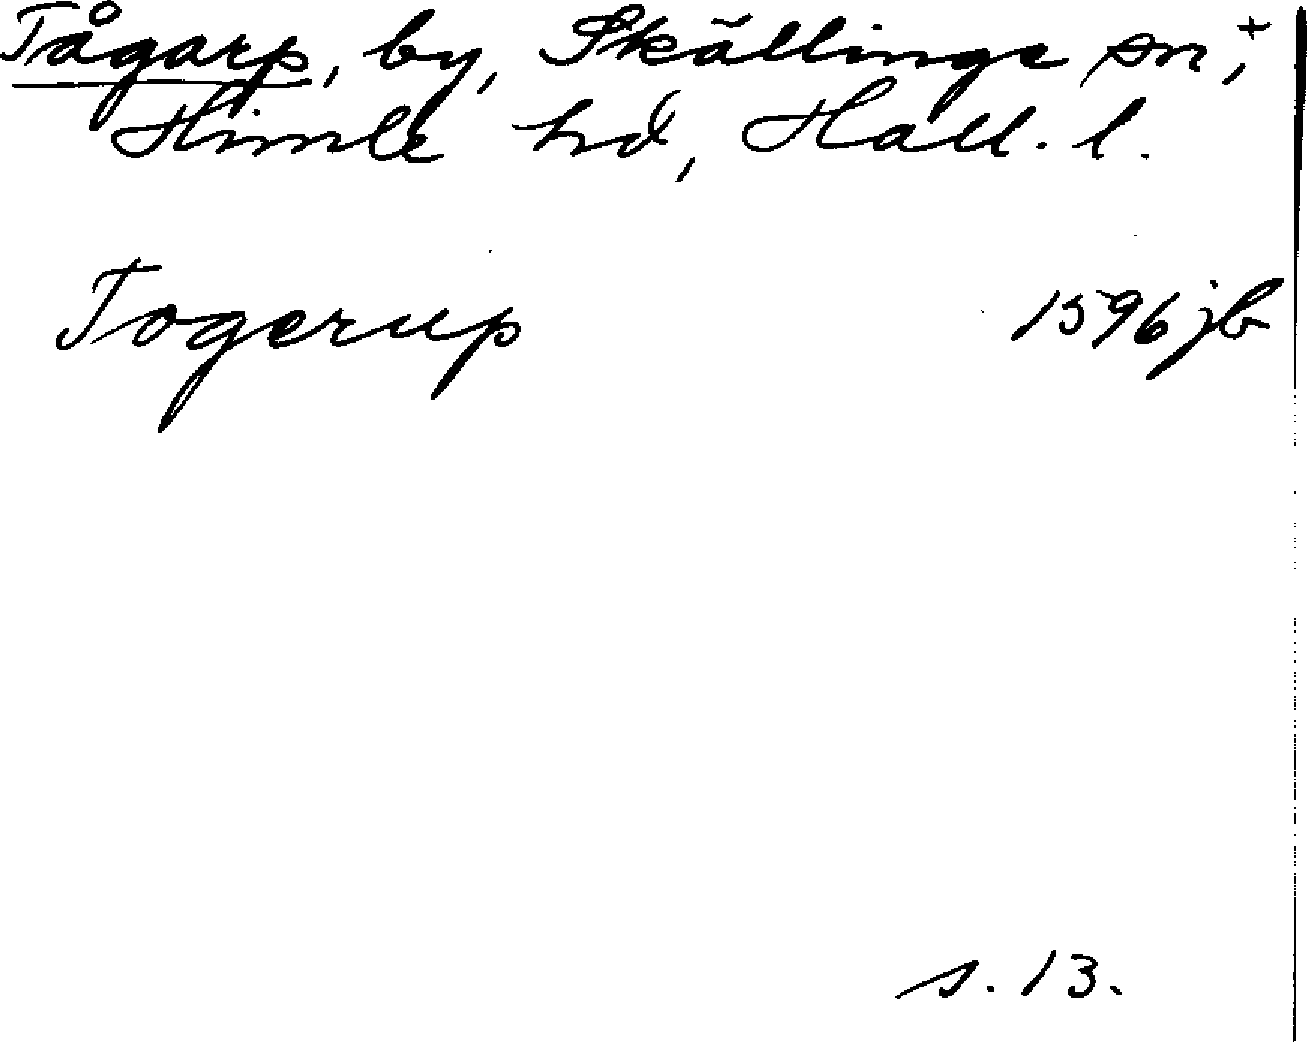 Tågarp, by, Skällinge sn,+
Himle hd, Hall. l.
Togerup 1596 jb
s. 13.